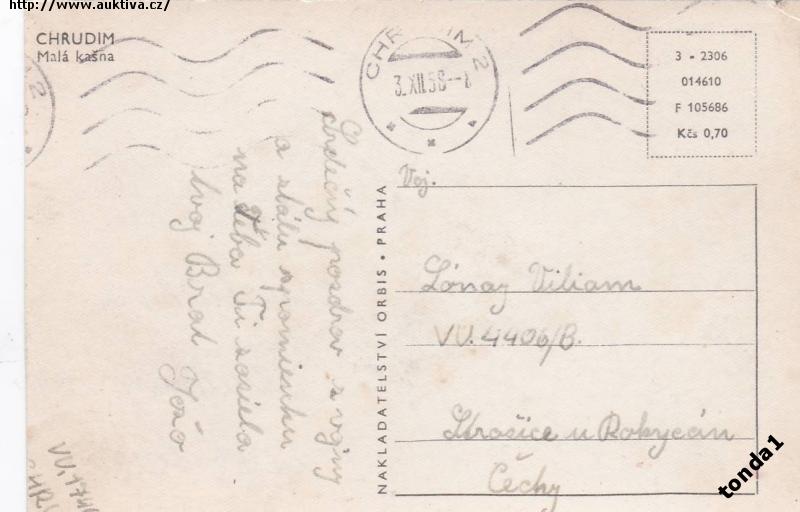 http://www.auktiva.cz/
CHRUDIM
Malá kašna
CHRUDIM 2
3.XII.58
3 - 2306
014610
F 105686
Kčs 0,70
Srdečný pozdrav z vojny
a stálu spomienku
na Teba Ti zasiela
tvoj Brat Jožo
NAKLADATELSTVÍ ORBIS • PRAHA
Voj.
Lónay Viliam
VÚ. 4406/B.
Strašice u Rokycán
Čechy
tonda1